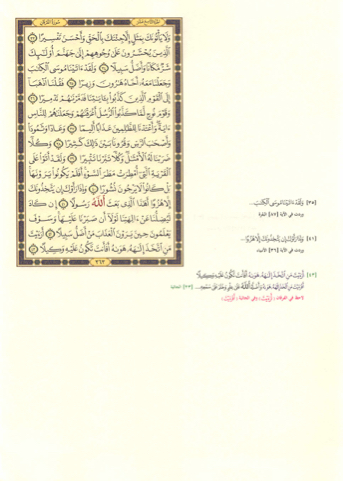 الجزء التاسع عشر
سورة الفرقان
وَلَا يَأْتُونَكَ بِمَثَلٍ إِلَّا جِئْنَاكَ بِالْحَقِّ وَأَحْسَنَ تَفْسِيرًا ﴿٣٣﴾
الَّذِينَ يُحْشَرُونَ عَلَىٰ وُجُوهِهِمْ إِلَىٰ جَهَنَّمَ أُولَٰئِكَ
شَرٌّ مَكَانًا وَأَضَلُّ سَبِيلًا ﴿٣٤﴾ وَلَقَدْ آتَيْنَا مُوسَى الْكِتَابَ
وَجَعَلْنَا مَعَهُ أَخَاهُ هَارُونَ وَزِيرًا ﴿٣٥﴾ فَقُلْنَا اذْهَبَا
إِلَى الْقَوْمِ الَّذِينَ كَذَّبُوا بِآيَاتِنَا فَدَمَّرْنَاهُمْ تَدْمِيرًا ﴿٣٦﴾
وَقَوْمَ نُوحٍ لَمَّا كَذَّبُوا الرُّسُلَ أَغْرَقْنَاهُمْ وَجَعَلْنَاهُمْ لِلنَّاسِ
آيَةً وَأَعْتَدْنَا لِلظَّالِمِينَ عَذَابًا أَلِيمًا ﴿٣٧﴾ وَعَادًا وَثَمُودَا
وَأَصْحَابَ الرَّسِّ وَقُرُونًا بَيْنَ ذَٰلِكَ كَثِيرًا ﴿٣٨﴾ وَكُلًّا
ضَرَبْنَا لَهُ الْأَمْثَالَ وَكُلًّا تَبَّرْنَا تَتْبِيرًا ﴿٣٩﴾ وَلَقَدْ أَتَوْا عَلَى
الْقَرْيَةِ الَّتِي أُمْطِرَتْ مَطَرَ السَّوْءِ أَفَلَمْ يَكُونُوا يَرَوْنَهَا
بَلْ كَانُوا لَا يَرْجُونَ نُشُورًا ﴿٤٠﴾ وَإِذَا رَأَوْكَ إِنْ يَتَّخِذُونَكَ
إِلَّا هُزُوًا أَهَٰذَا الَّذِي بَعَثَ اللَّهُ رَسُولًا ﴿٤١﴾ إِنْ كَادَ
لَيُضِلُّنَا عَنْ آلِهَتِنَا لَوْلَا أَنْ صَبَرْنَا عَلَيْهَا وَسَوْفَ
يَعْلَمُونَ حِينَ يَرَوْنَ الْعَذَابَ مَنْ أَضَلُّ سَبِيلًا ﴿٤٢﴾ أَرَأَيْتَ
مَنِ اتَّخَذَ إِلَٰهَهُ هَوَاهُ أَفَأَنْتَ تَكُونُ عَلَيْهِ وَكِيلًا ﴿٤٣﴾
٣٦٣
[٣٥] وَلَقَدْ آتَيْنَا مُوسَى الْكِتَابَ...
وردت في الآية [٨٧] البقرة
[٤١] وَإِذَا رَأَوْكَ إِنْ يَتَّخِذُونَكَ إِلَّا هُزُوًا...
وردت في الآية [٣٦] الأنبياء
[٤٣] أَرَأَيْتَ مَنِ اتَّخَذَ إِلَٰهَهُ هَوَاهُ أَفَأَنْتَ تَكُونُ عَلَيْهِ وَكِيلًا
أَفَرَأَيْتَ مَنِ اتَّخَذَ إِلَٰهَهُ هَوَاهُ وَأَضَلَّهُ اللَّهُ عَلَىٰ عِلْمٍ وَخَتَمَ عَلَىٰ سَمْعِهِ... [٢٣] الجاثية
في الفرقان (أرأيت) وفي الجاثية (أفرأيت)